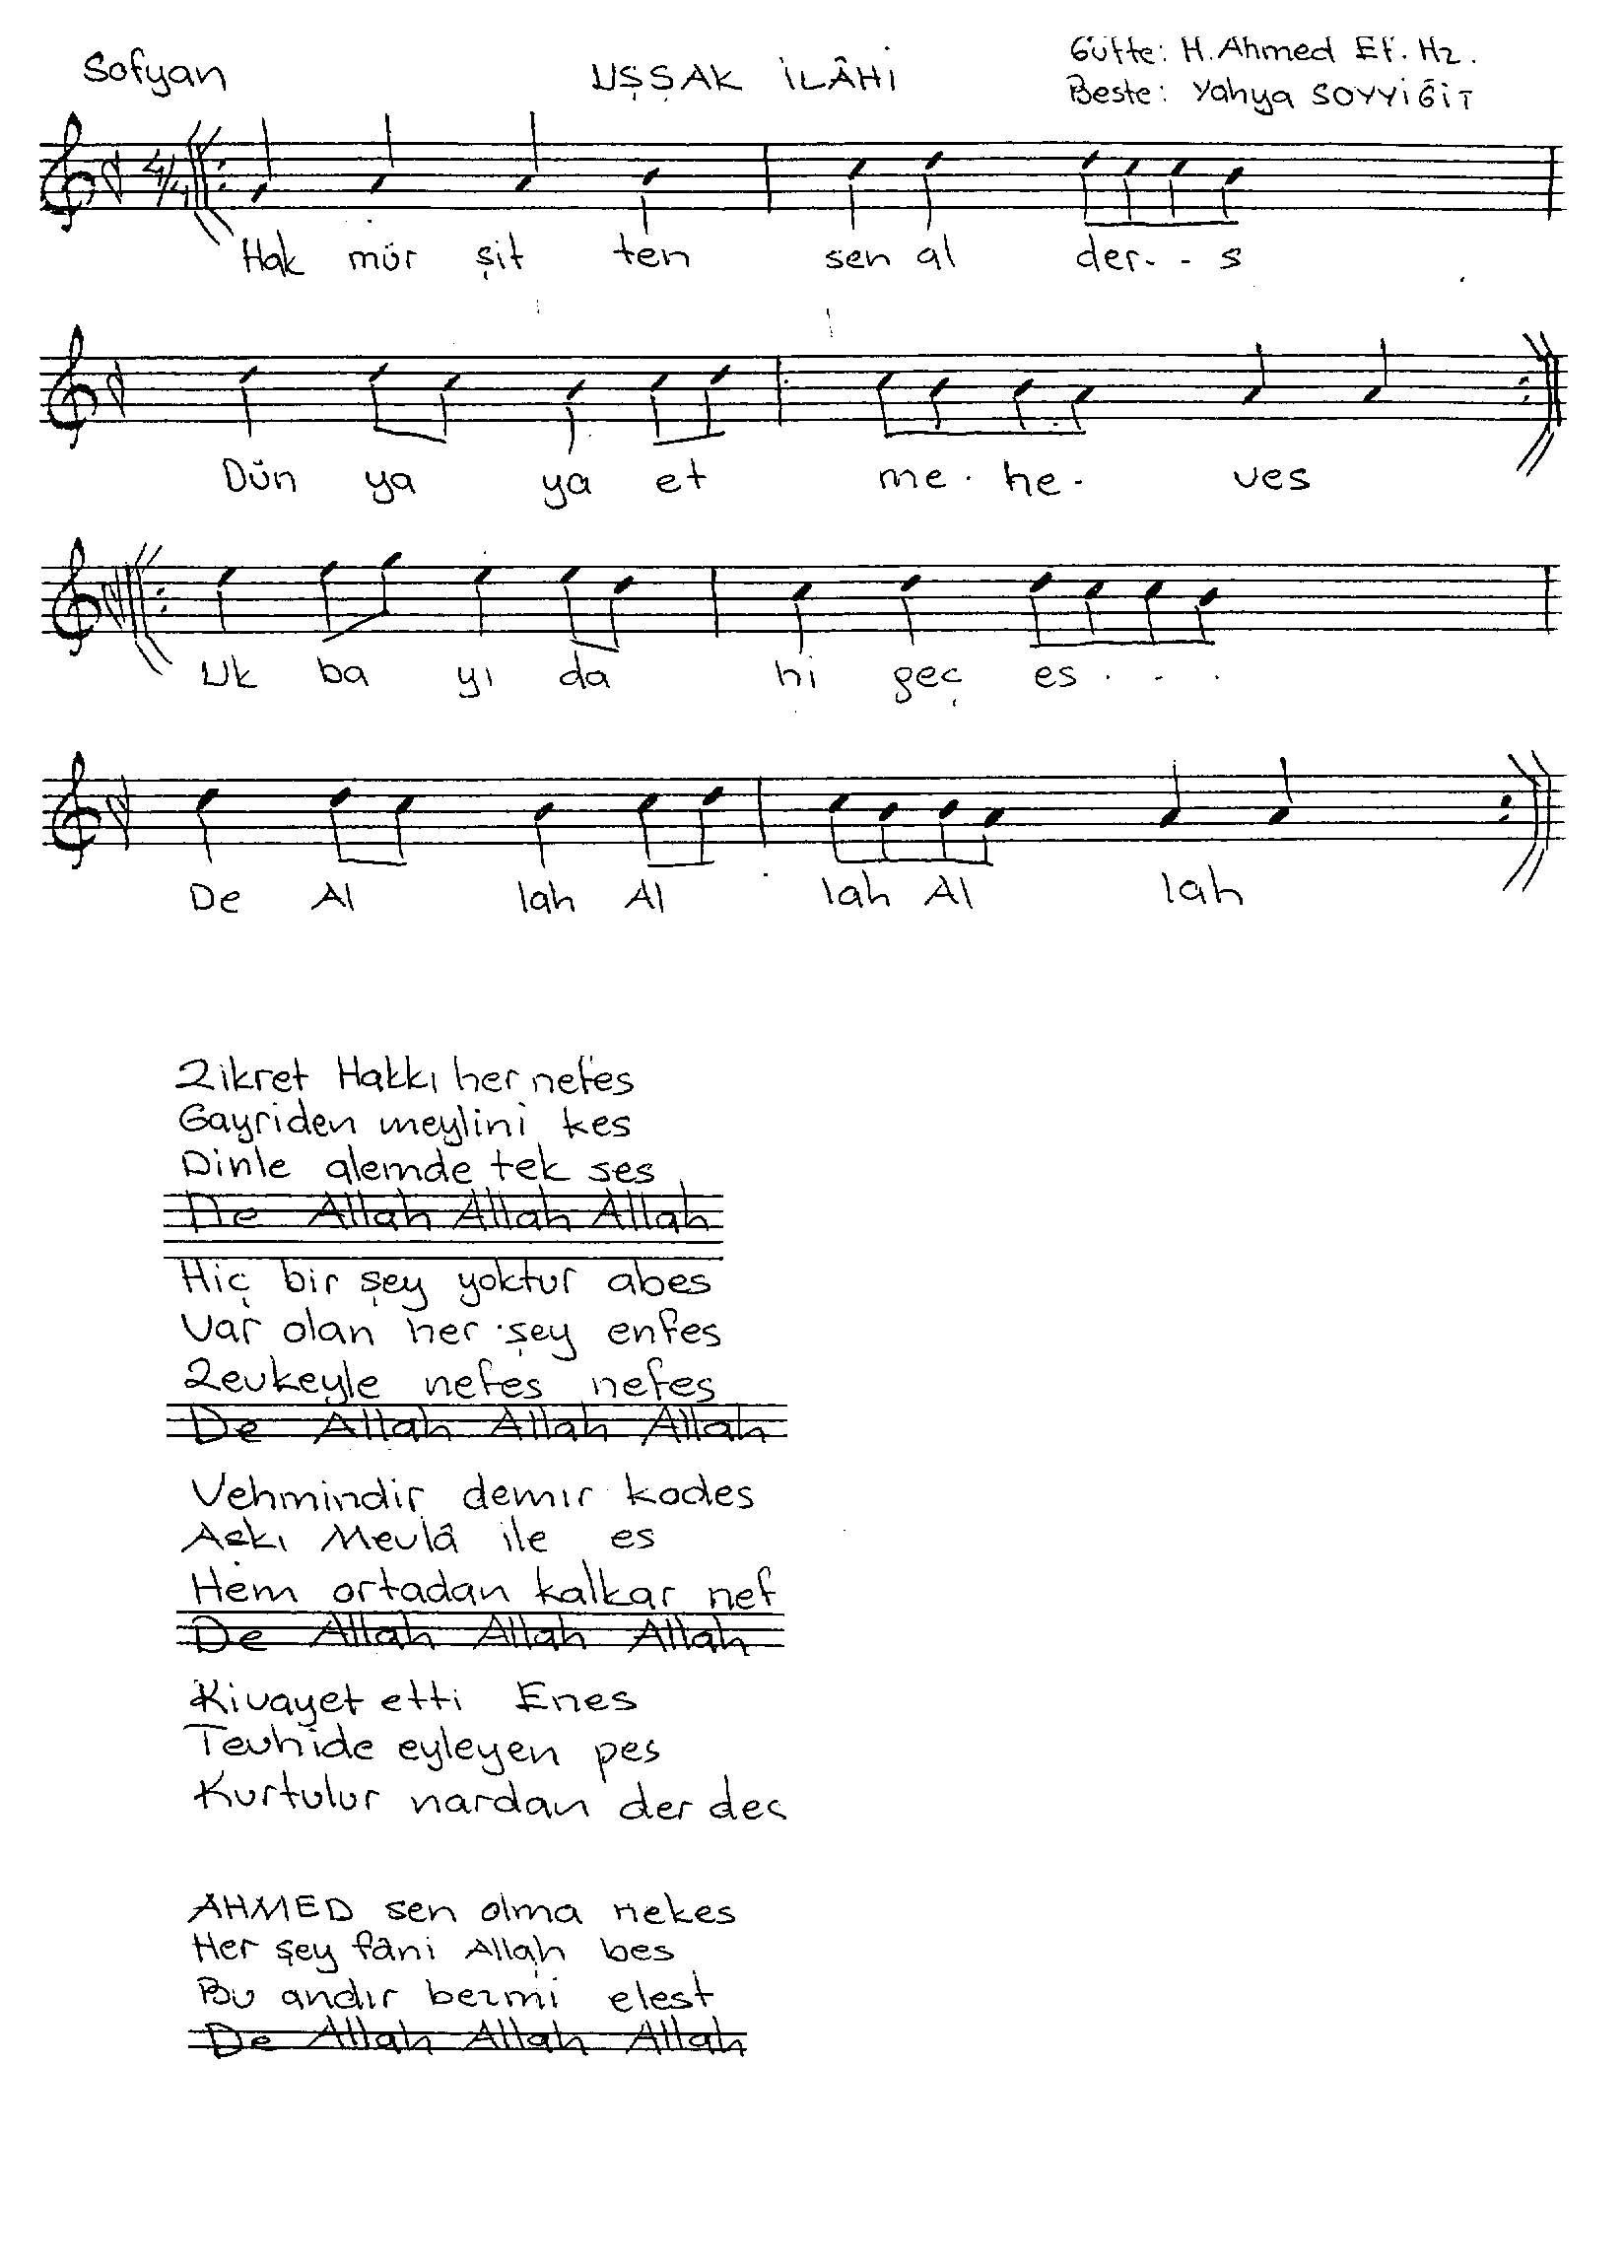 Sofyan
UŞŞAK İLÂHİ
Güfte: H. Ahmed Ef. Hz.
Beste: Yahya SOYYİĞİT
4/4
Hak mür şit ten sen al der- - s
Dün ya ya et me . he - ves
Uk ba yı da hi geç es . - .
De Al lah Al lah Al lah
Zikret Hakkı her nefes
Gayriden meylini kes
Dinle alemde tek ses
De Allah Allah Allah
Hiç bir şey yoktur abes
Var olan her şey enfes
Zevkeyle nefes nefes
De Allah Allah Allah
Vehmindir demır kodes
Aşkı Mevlâ ile es
Hem ortadan kalkar nef
De Allah Allah Allah
Rivayet etti Enes
Tevhide eyleyen pes
Kurtulur nardan der des
AHMED sen olma nekes
Her şey fâni Allah bes
Bu andır bezmi elest
De Allah Allah Allah